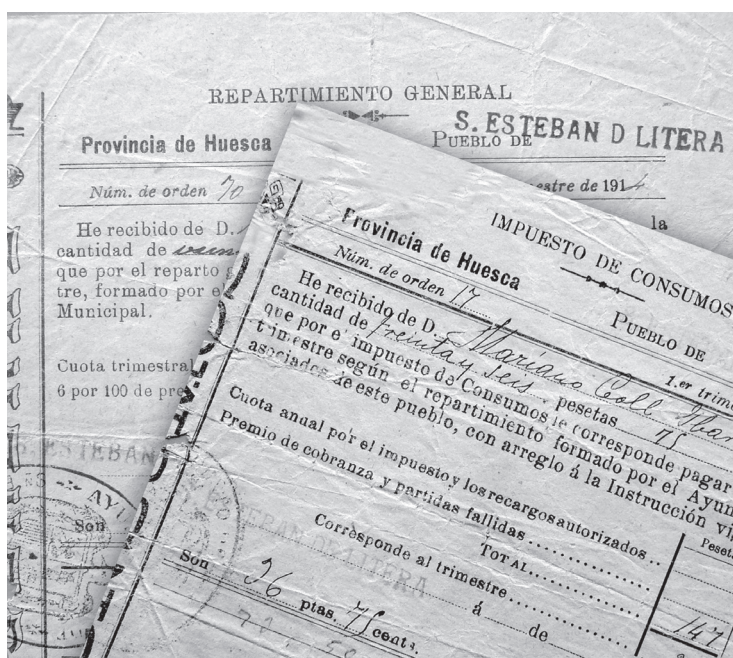 REPARTIMIENTO GENERAL
Provincia de Huesca
PUEBLO DE S. ESTEBAN D LITERA
Núm. de orden 70
estre de 1914
He recibido de D.
la
cantidad de
que por el reparto
tre, formado por e
Municipal.
Cuota trimestral
6 por 100 de pre
S. ESTEBAN
AYU
Son
IMPUESTO DE CONSUMOS
Provincia de Huesca
PUEBLO DE
Núm. de orden 17
1.er trime
He recibido de D. Mariano Coll
cantidad de treinta y seis pesetas 75
que por el impuesto de Consumos le corresponde pagar
trimestre según el repartimiento formado por el Ayun
asociados de este pueblo, con arreglo á la Instrucción vi
Peseta
Cuota anual por el impuesto y los recargos autorizados..
Premio de cobranza y partidas fallidas
TOTAL
147
Corresponde al trimestre
Son 36 ptas. 75 cents.
á de
ESTEBAN DE LITERA